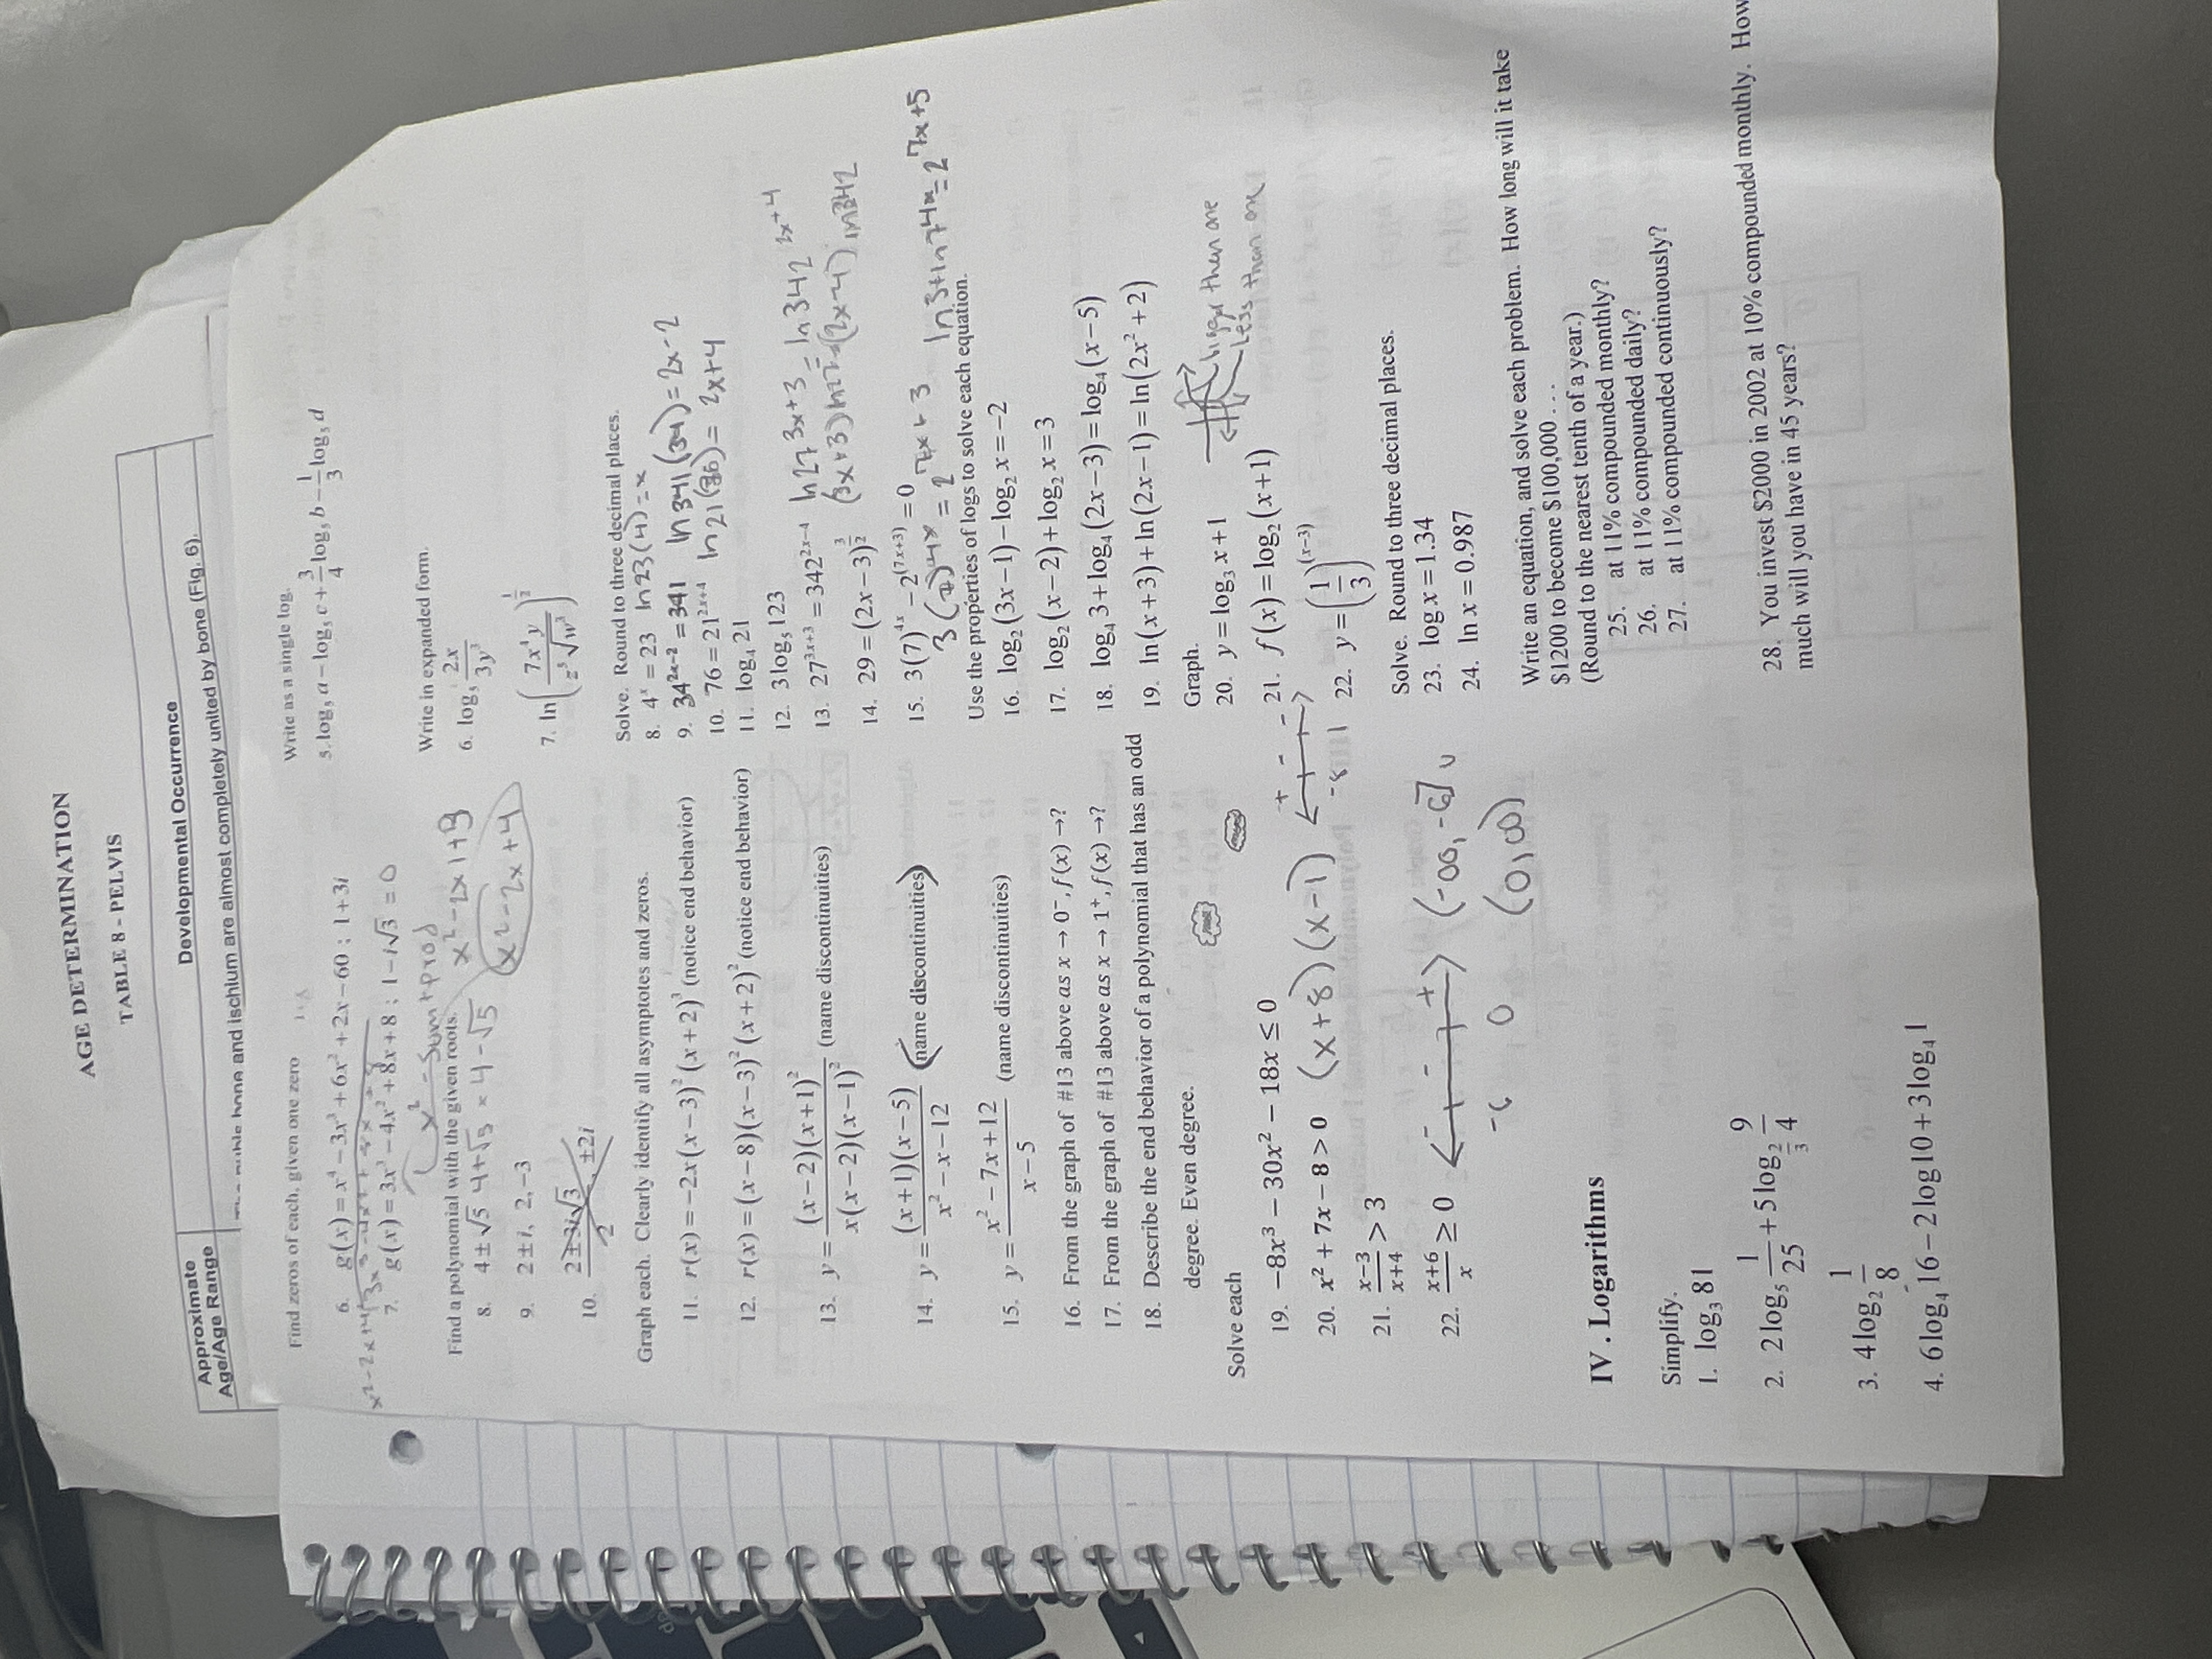 AGE DETERMINATION
TABLE 8 - PELVIS
Approximate
Age/Age Range
Developmental Occurrence
and ischium are almost completely united by bone (Fig. 6).
Find zeros of each, given one zero
6. g(x) = x⁴ − 3x³ + 6x² + 2x − 60 ; 1 + 3i
7. g(x) = 3x³ − 4x² + 8x + 8 ; 1 − i√3 = 0
x² - sum + prod
Find a polynomial with the given roots.
x² - 2x + 9
8. 4 ± √5 4+√5 × 4 - √5
x² - 2x + 4
9. 2 ± i, 2, −3
10. (2 ± 3i√3)/2, ±2i
Graph each. Clearly identify all asymptotes and zeros.
11. r(x) = −2x(x − 3)²(x + 2)³ (notice end behavior)
12. r(x) = (x − 8)(x − 3)²(x + 2)² (notice end behavior)
13. y = (x − 2)(x + 1)² / x(x − 2)(x − 1)² (name discontinuities)
14. y = (x + 1)(x − 5) / x² − x − 12 (name discontinuities)
15. y = x² − 7x + 12 / x − 5 (name discontinuities)
16. From the graph of #13 above as x → 0⁻, f(x) →?
17. From the graph of #13 above as x → 1⁺, f(x) →?
18. Describe the end behavior of a polynomial that has an odd
degree. Even degree.
Solve each
19. −8x³ − 30x² − 18x ≤ 0
20. x² + 7x − 8 > 0 (x+8)(x-1)
+ - -
-8 1
21. x−3 / x+4 > 3
22. x+6 / x ≥ 0 (-∞, -6] ∪
- - +
-6 0 (0, ∞)
IV . Logarithms
Simplify.
1. log₃ 81
2. 2 log₅ 1/25 + 5 log_(2/3) 9/4
3. 4 log₂ 1/8
4. 6 log₄ 16 − 2 log 10 + 3 log₄ 1
Write as a single log.
5. log₅ a − log₅ c + 3/4 log₅ b − 1/3 log₅ d
Write in expanded form.
6. log₅ 2x/3y³
7. ln(7x⁴y / z⁵√w³)^(1/2)
Solve. Round to three decimal places.
8. 4ˣ = 23 ln 23 (4) = x
9. 34²ˣ⁻² = 341 ln 341 (34) = 2x-2
10. 76 = 21²ˣ⁺⁴ ln 21 (76) = 2x+4
11. log₄ 21
12. 3 log₅ 123
13. 27³ˣ⁺³ = 342²ˣ⁻⁴ ln 27 3x+3 = ln 342 2x+4
(3x+3) ln 27 = (2x-4) ln 342
14. 29 = (2x − 3)^(3/2)
15. 3(7)⁴ˣ − 2^(7x+3) = 0
3(7)4x = 2 7x+3 ln 3 + ln 7 4x = 2 7x+5
Use the properties of logs to solve each equation.
16. log₂(3x − 1) − log₂ x = −2
17. log₂(x − 2) + log₂ x = 3
18. log₄ 3 + log₄(2x − 3) = log₄(x − 5)
19. ln(x + 3) + ln(2x − 1) = ln(2x² + 2)
Graph.
20. y = log₃ x + 1
bigger then one
less than one
21. f(x) = log₂(x + 1)
22. y = (1/3)^(x−3)
Solve. Round to three decimal places.
23. log x = 1.34
24. ln x = 0.987
Write an equation, and solve each problem. How long will it take
$1200 to become $100,000…
(Round to the nearest tenth of a year.)
25. at 11% compounded monthly?
26. at 11% compounded daily?
27. at 11% compounded continuously?
28. You invest $2000 in 2002 at 10% compounded monthly. How
much will you have in 45 years?